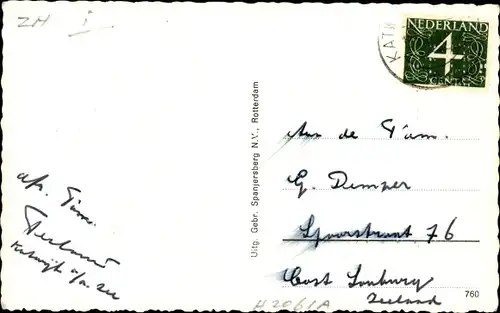 ZH I
NEDERLAND
4
CENT
KAT
Uitg. Gebr. Spanjersberg N.V., Rotterdam
Aan de Fam.
G. Demper
Spoorstraat 76
Oost Souburg
Zeeland
afz. Fam.
Katwijk a/d Zee
760